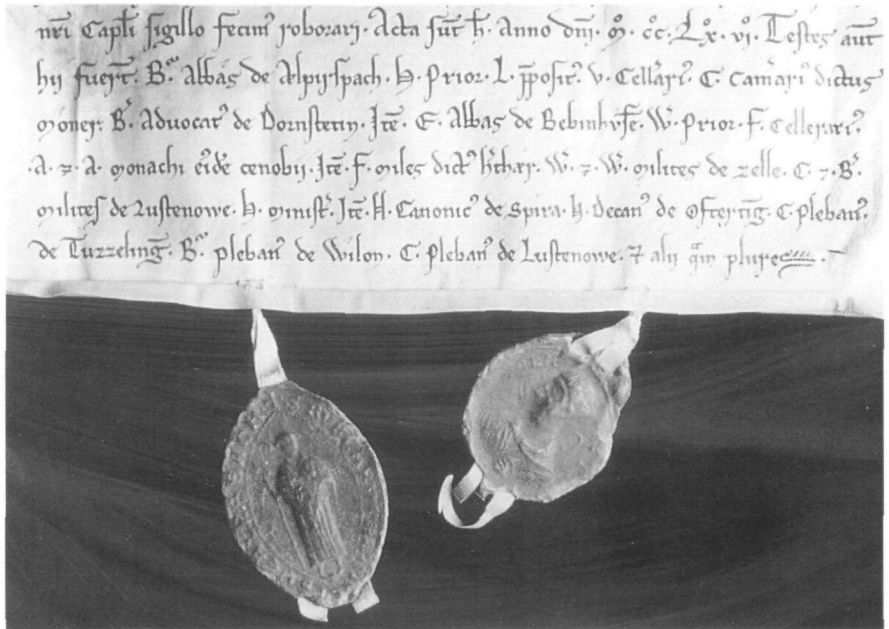 nr̄i Capl̄i sigillo fecim⁹ roborari. Acta sūt h̄. Anno dn̄i. m̊. cc̊. Lx̊. vi̊. Testes aut̄
hii fuer̄t. B. Abbas de Alpirspach. H. Prior. L. p̄posit⁹. V. Cellar̄i⁹. C. Cam̄ari⁹ dictus
moner. B. Advocat⁹ de Dornstetin. Itē. E. Abbas de Bebinhvſe. W. Prior. F. Cellerari⁹.
.A. ⁊. A. monachi eīdē cenobii. Itē. F. miles dict⁹ W. ⁊. W. milites de zelle. C. ⁊. B.
milites de Lustenowe. H. minist̄. Itē. H. Canonic⁹ de Spira. H. Decan⁹ de Ofterting̅. C. Pleban⁹.
de Tuzzeling̅. B. pleban⁹ de Wilon. C. Pleban⁹ de Lustenowe. ⁊ alii q̄m plures.